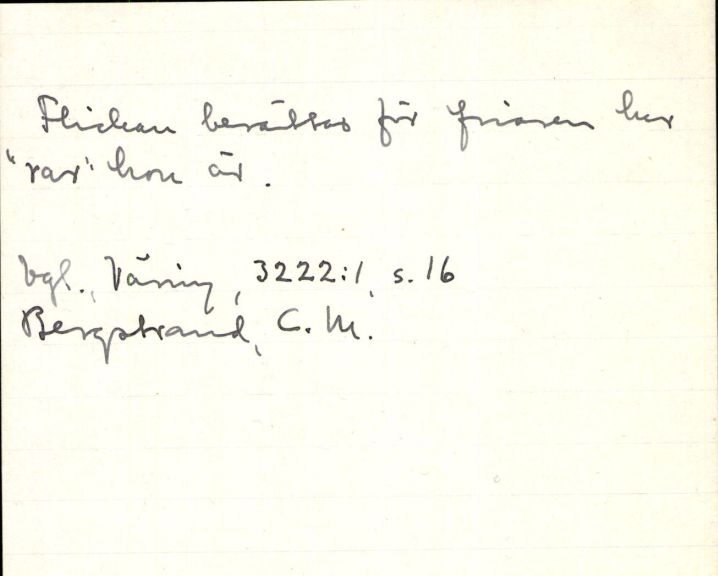 Flickan berättar för friaren hur
"rar" hon är.
Vgl., Väring, 3222:1, s. 16
Bergstrand, C. M.